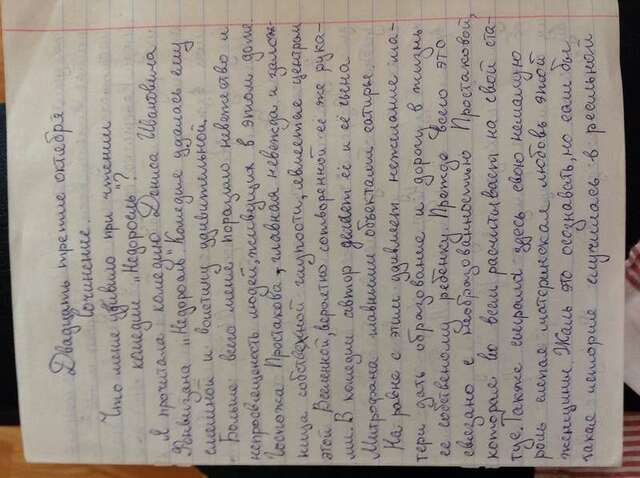 Двадцать третье октября
Сочинение.
Что меня удивило при чтении
комедии „Недоросль"?
Я прочитала комедию Дениса Ивановича
Фонвизина „Недоросль". Комедия удалась ему
смешной и воистину удивительной.
Больше всего меня поразило невежество и
непросвещённость людей, живущих в этом доме.
Госпожа Простакова, главная невежда и залож-
ница собственной глупости, является центром
этой Вселенной, вероятно сотворенной ее же рука-
ми. В комедии автор делает её и её сына
Митрофана главными объектами сатиры.
На равне с этим удивляет нежелание ма-
тери дать образование и дорогу в жизнь
ее собственному ребенку. Прежде всего это
связано с необразованностью Простаковой,
которая во всем расчитывает на свой ста-
тус. Также сыграла здесь свою немалую
роль слепая материнская любовь этой
женщины. Жаль это осознавать, но если бы
такая история случилась в реальной